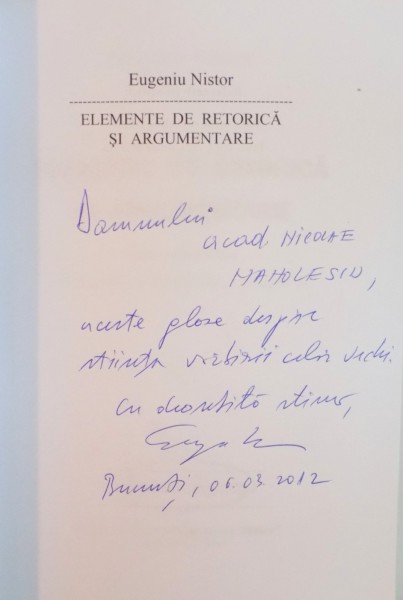 Eugeniu Nistor
ELEMENTE DE RETORICĂ
ȘI ARGUMENTARE
Domnului
acad. NICOLAE
MANOLESCU,
aceste glose despre
știința vorbirii celor vechi.
cu deosebită stimă,
București, 06.03.2012